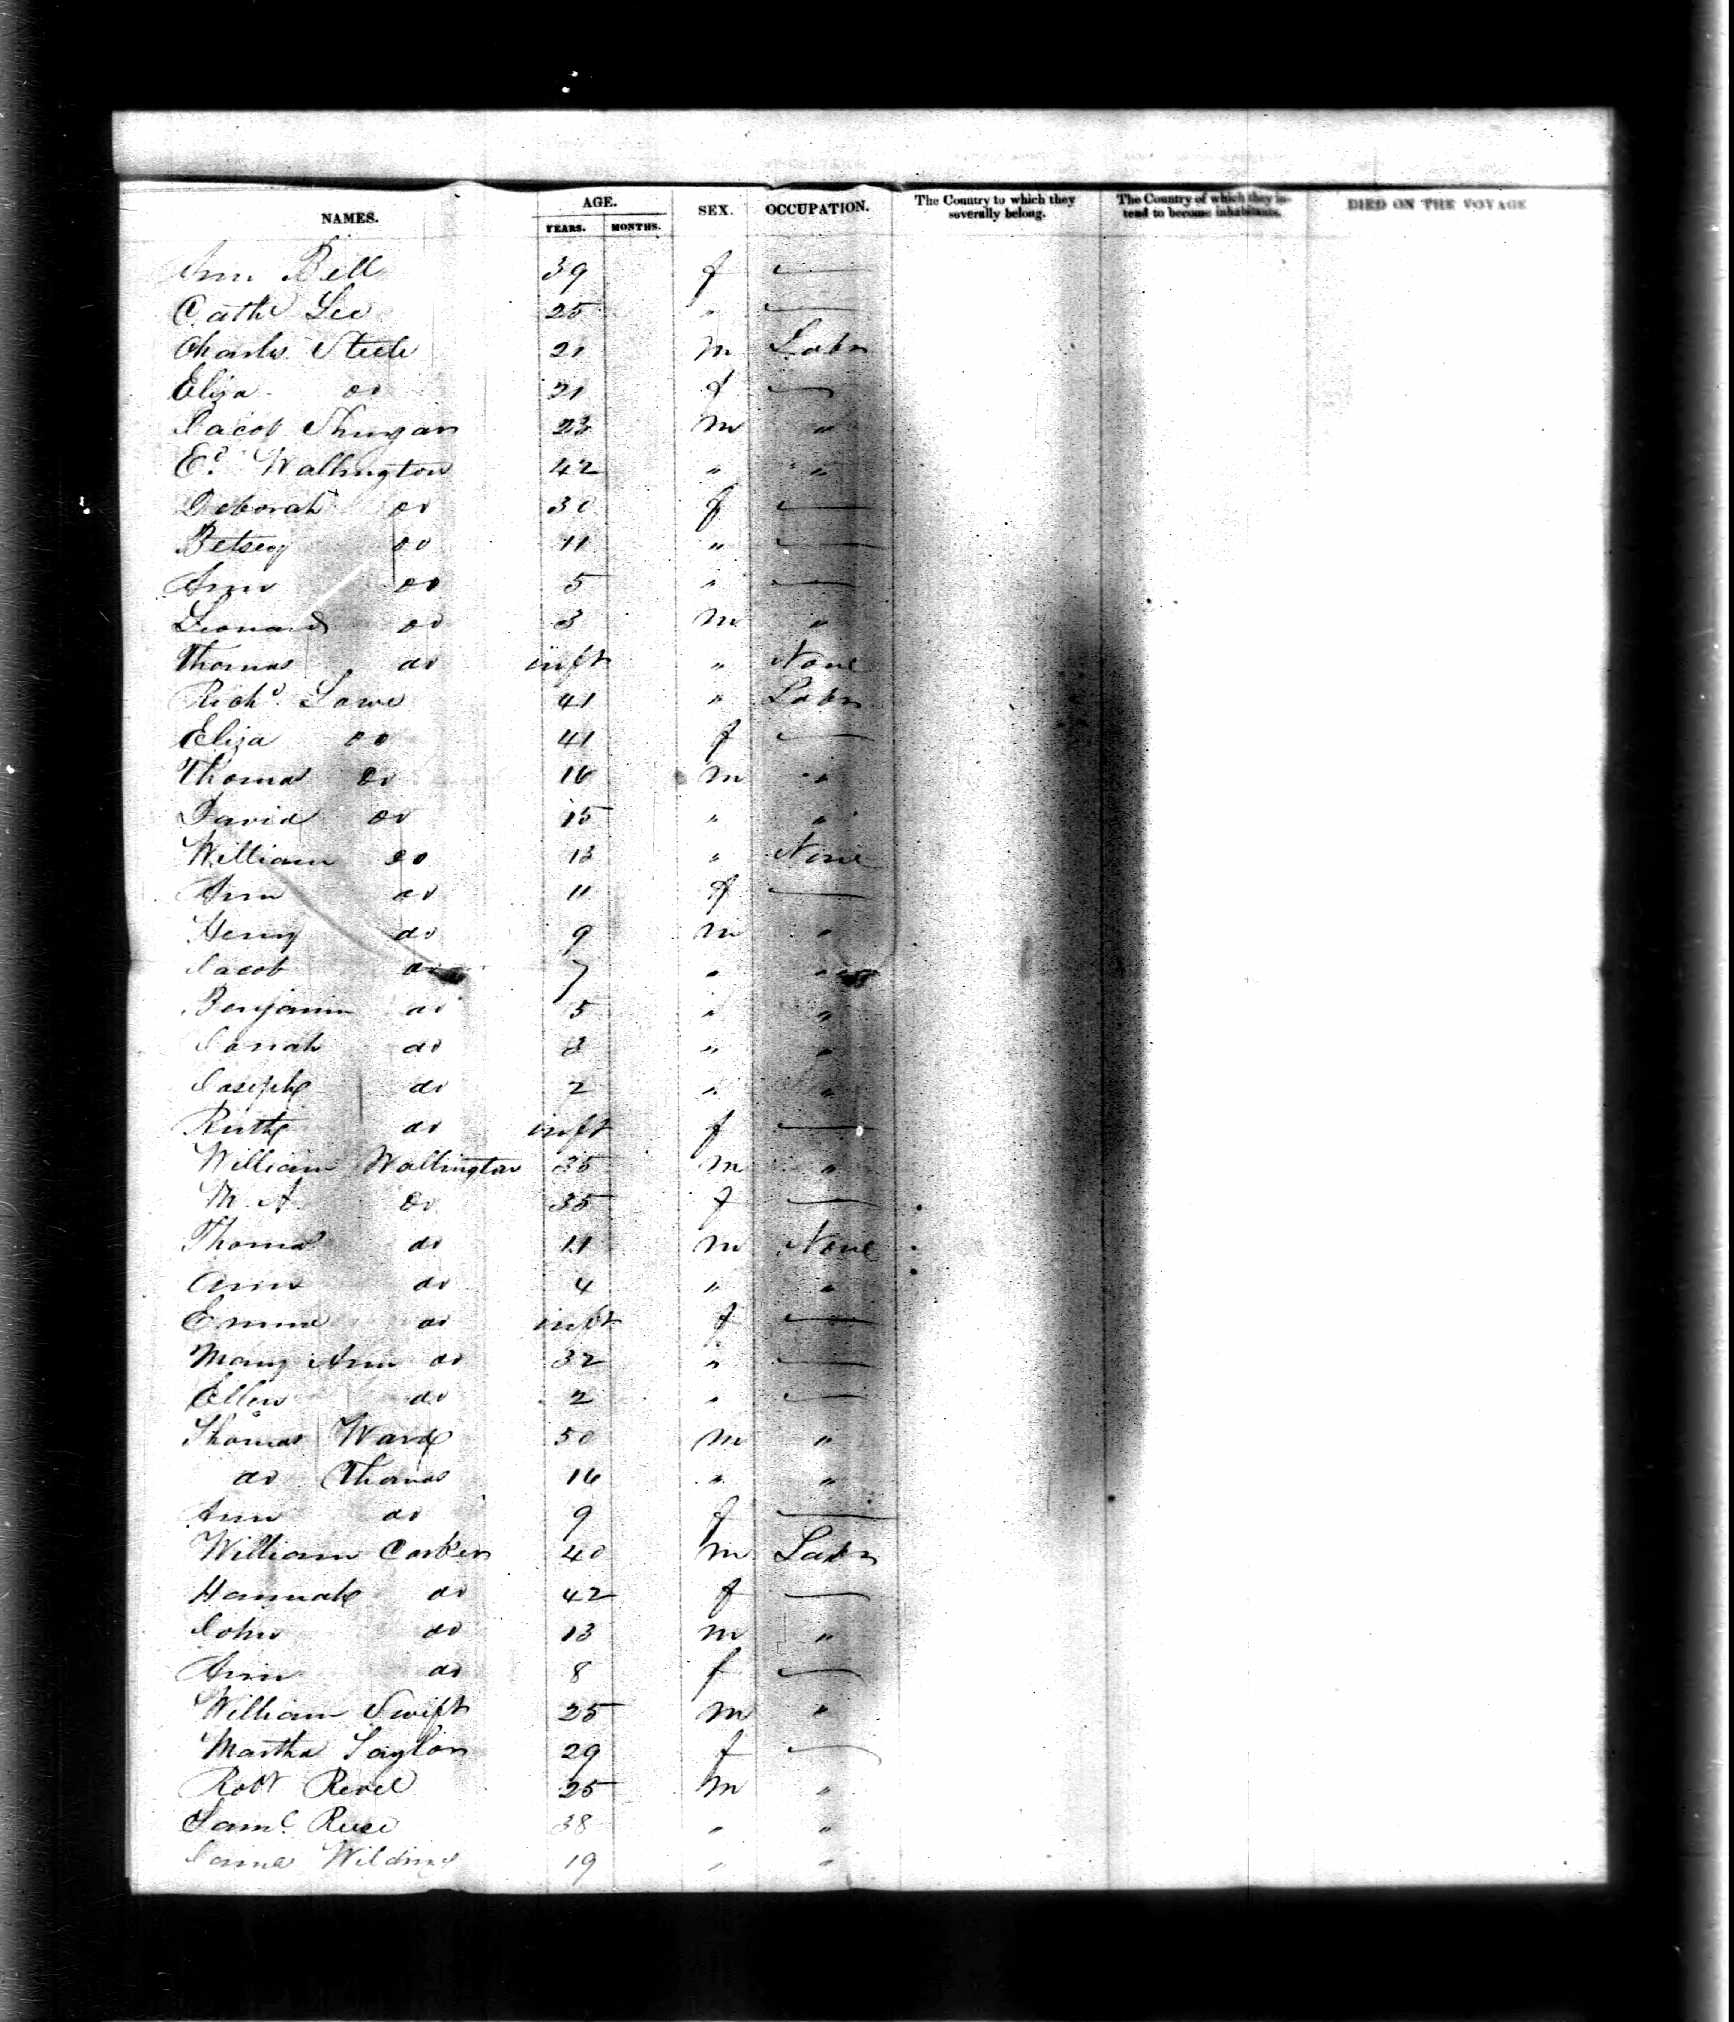 NAMES. AGE. SEX. OCCUPATION. The Country to which they severally belong. The Country of which they intend to become inhabitants. DIED ON THE VOYAGE
YEARS. MONTHS.
Ann Bell 39 f —
Cathe Lee 25 " —
Charles Steele 21 m Labr
Eliza do 21 f —
Jacob 23 m "
Ed. Wallington 42 " "
Deborah do 30 f —
Betsey do 11 " —
Ann do 5 " —
Leonard do 3 m "
Thomas do inft " None
Richd. Lowe 41 " Labr
Eliza do 41 f —
Thomas do 16 m "
David do 15 " "
William do 13 " None
Ann do 11 f —
Henry do 9 m "
Jacob do 7 " "
Benjamin do 5 " "
do 3 " "
Joseph do 2 " "
Ruth do inft f —
William Wallington 35 m "
M. A. do 35 f —
Thomas do 11 m None
Ann do 4 " "
Emma do inft f —
Mary Ann do 32 " —
Ellen do 2 " —
Thomas Ward 50 m "
do Thomas 16 " "
Ann do 9 f —
William 40 m Labr
Hannah do 42 f —
John do 13 m "
Ann do 8 f —
William Swift 25 m "
Martha Taylor 29 f —
Robt Revel 25 m "
Saml. 38 " "
19 " "